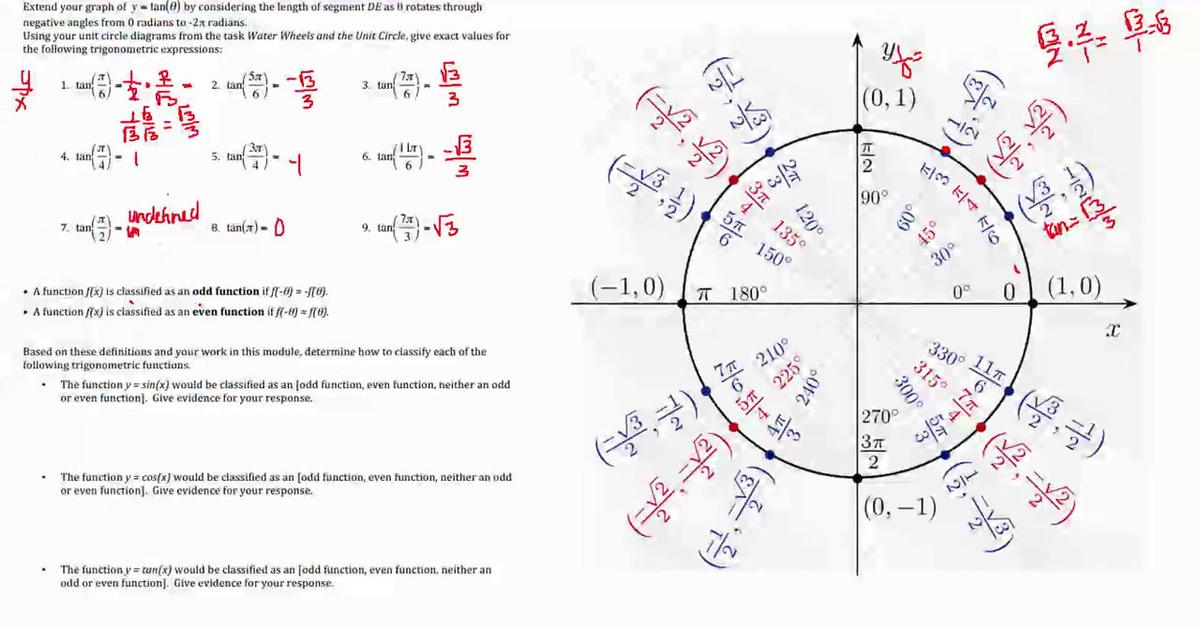 Extend your graph of y = tan(θ) by considering the length of segment DE as θ rotates through
negative angles from 0 radians to -2π radians.
Using your unit circle diagrams from the task Water Wheels and the Unit Circle, give exact values for
the following trigonometric expressions:
y/x
1. tan(π/6) = 1/2 · 2/√3
1/√3 √3/√3 = √3/3
2. tan(5π/6) = -√3/3
3. tan(7π/6) = √3/3
4. tan(π/4) = 1
5. tan(3π/4) = -1
6. tan(11π/6) = -√3/3
7. tan(π/2) = undefined
8. tan(π) = 0
9. tan(7π/3) = √3
• A function f(x) is classified as an odd function if f(-θ) = -f(θ).
• A function f(x) is classified as an even function if f(-θ) = f(θ).
Based on these definitions and your work in this module, determine how to classify each of the
following trigonometric functions.
• The function y = sin(x) would be classified as an [odd function, even function, neither an odd
or even function]. Give evidence for your response.
• The function y = cos(x) would be classified as an [odd function, even function, neither an odd
or even function]. Give evidence for your response.
• The function y = tan(x) would be classified as an [odd function, even function, neither an
odd or even function]. Give evidence for your response.
√3/2 · 2/1 = √3/1 = √3
y
1/0 =
(0, 1)
π/2
90°
(1/2, √3/2)
π/3
60°
(√2/2, √2/2)
π/4
45°
(√3/2, 1/2)
π/6
30°
tan = √3/3
(-1/2, √3/2)
2π/3
120°
(-√2/2, √2/2)
3π/4
135°
(-√3/2, 1/2)
5π/6
150°
(−1, 0)
π 180°
0° 0
(1, 0)
x
7π/6
210°
(-√3/2, -1/2)
5π/4
225°
(-√2/2, -√2/2)
4π/3
240°
(-1/2, -√3/2)
270°
3π/2
(0, −1)
330° 11π/6
(√3/2, -1/2)
315° 7π/4
(√2/2, -√2/2)
300° 5π/3
(1/2, -√3/2)